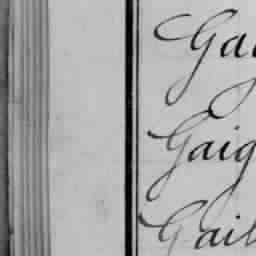 Gag
Gaig
Gail